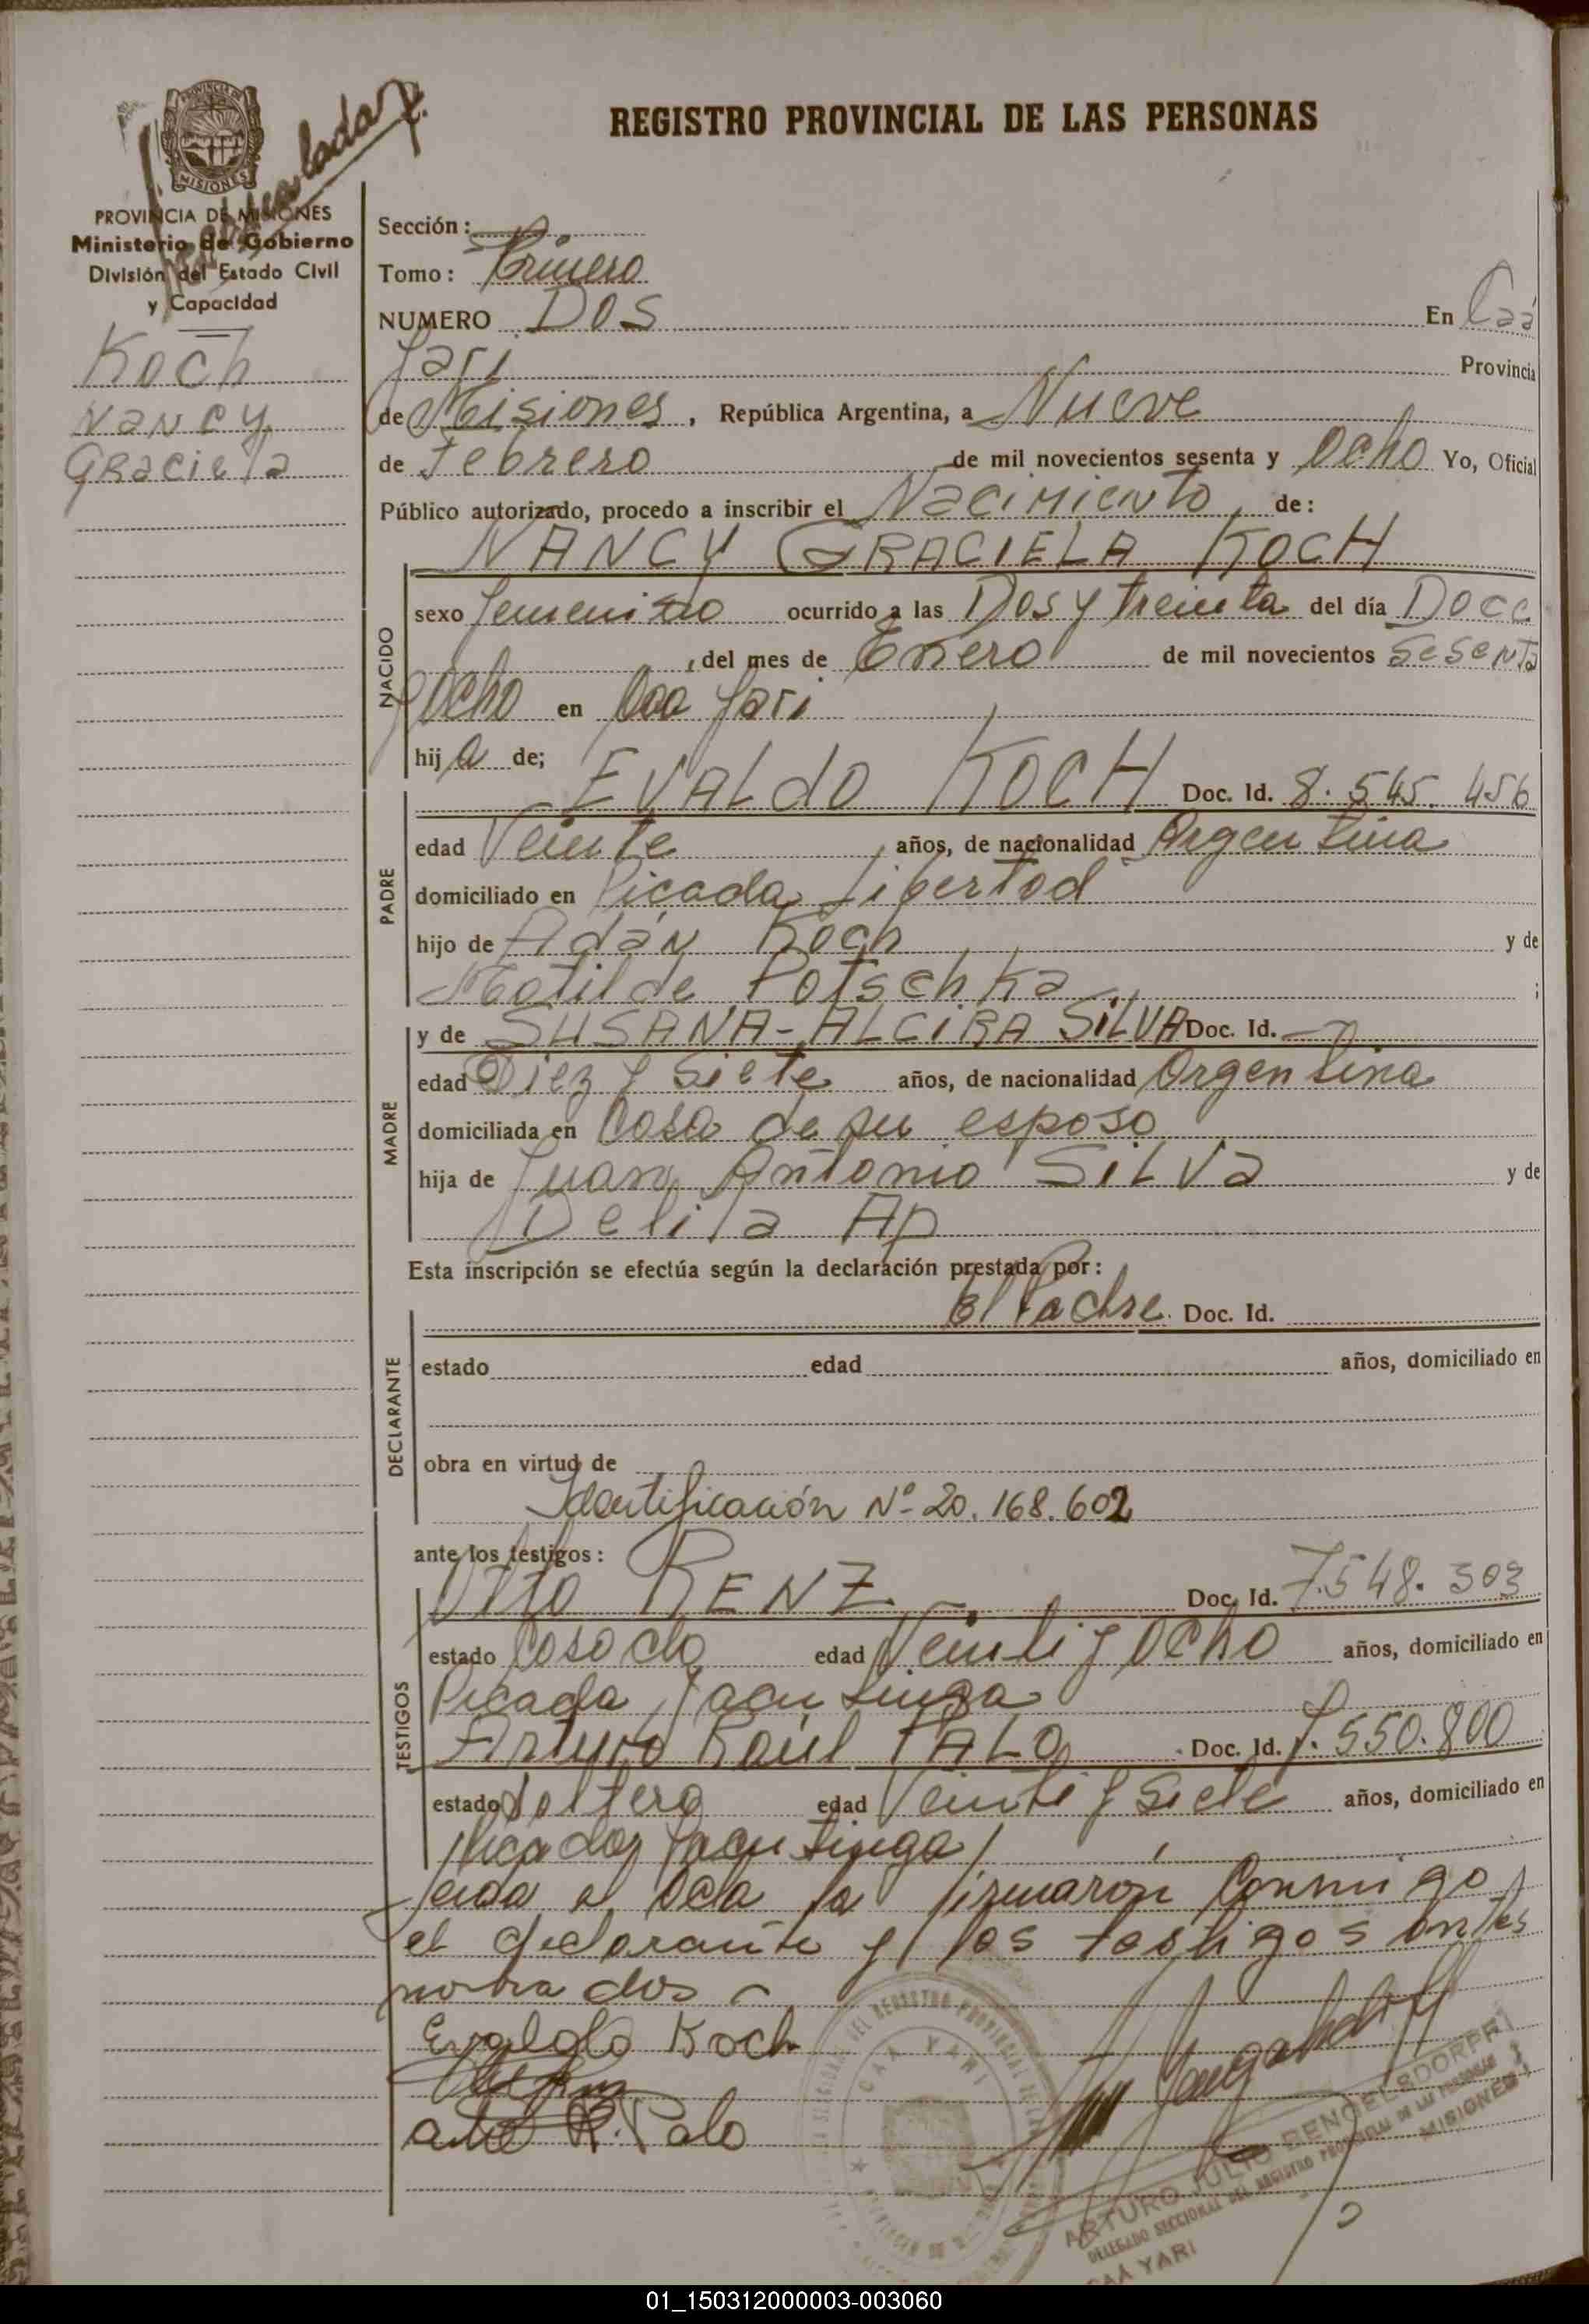 REGISTRO PROVINCIAL DE LAS PERSONAS
PROVINCIA DE MISIONES
MISIONES
PROVINCIA DE MISIONES
Ministerio de Gobierno
División del Estado Civil
y Capacidad
Koch
Nancy
Graciela
Sección:
Tomo: Primero
NUMERO Dos En Caá
Yari Provincia
de Misiones, República Argentina, a Nueve
de Febrero de mil novecientos sesenta y Ocho Yo, Oficial
Público autorizado, procedo a inscribir el Nacimiento de:
NANCY GRACIELA KOCH
NACIDO
sexo Femenino ocurrido a las Dos y treinta del día Doce
, del mes de Enero de mil novecientos sesenta
y Ocho en Caá Yari
hija de;
PADRE
EVALdO KOCH Doc. Id. 8.545.456
edad Veinte años, de nacionalidad Argentina
domiciliado en Picada Libertad
hijo de Adán Koch y de
Matilde Potschka ;
MADRE
y de SUSANA-ALCIRA SiLVA Doc. Id.
edad Diez y Siete años, de nacionalidad Argentina
domiciliada en Casa de su esposo
hija de Juan Antonio SiLVa y de
Delila Ap
Esta inscripción se efectúa según la declaración prestada por:
DECLARANTE
El Padre. Doc. Id.
estado edad años, domiciliado en
obra en virtud de
Identificación Nº 20.168.602
ante los testigos:
TESTIGOS
Otto RENZ Doc. Id. 7.548.303
estado Casado edad Veinti y Ocho años, domiciliado en
Picada Yacutinga
Arturo Raúl PALO Doc. Id. 7.550.800
estado Soltero edad Veinti y Siete años, domiciliado en
Picada Yacutinga
Leida el Acta la firmaron Conmigo
el declarante y los testigos antes
nombrados
Evaldo Koch
R. Palo
CAA YARI
ARTURO JULIO BENGELSDORFF
DELEGADO SECCIONAL DEL REGISTRO PROVINCIAL DE LAS PERSONAS
CAÁ YARI MISIONES
01_150312000003-003060